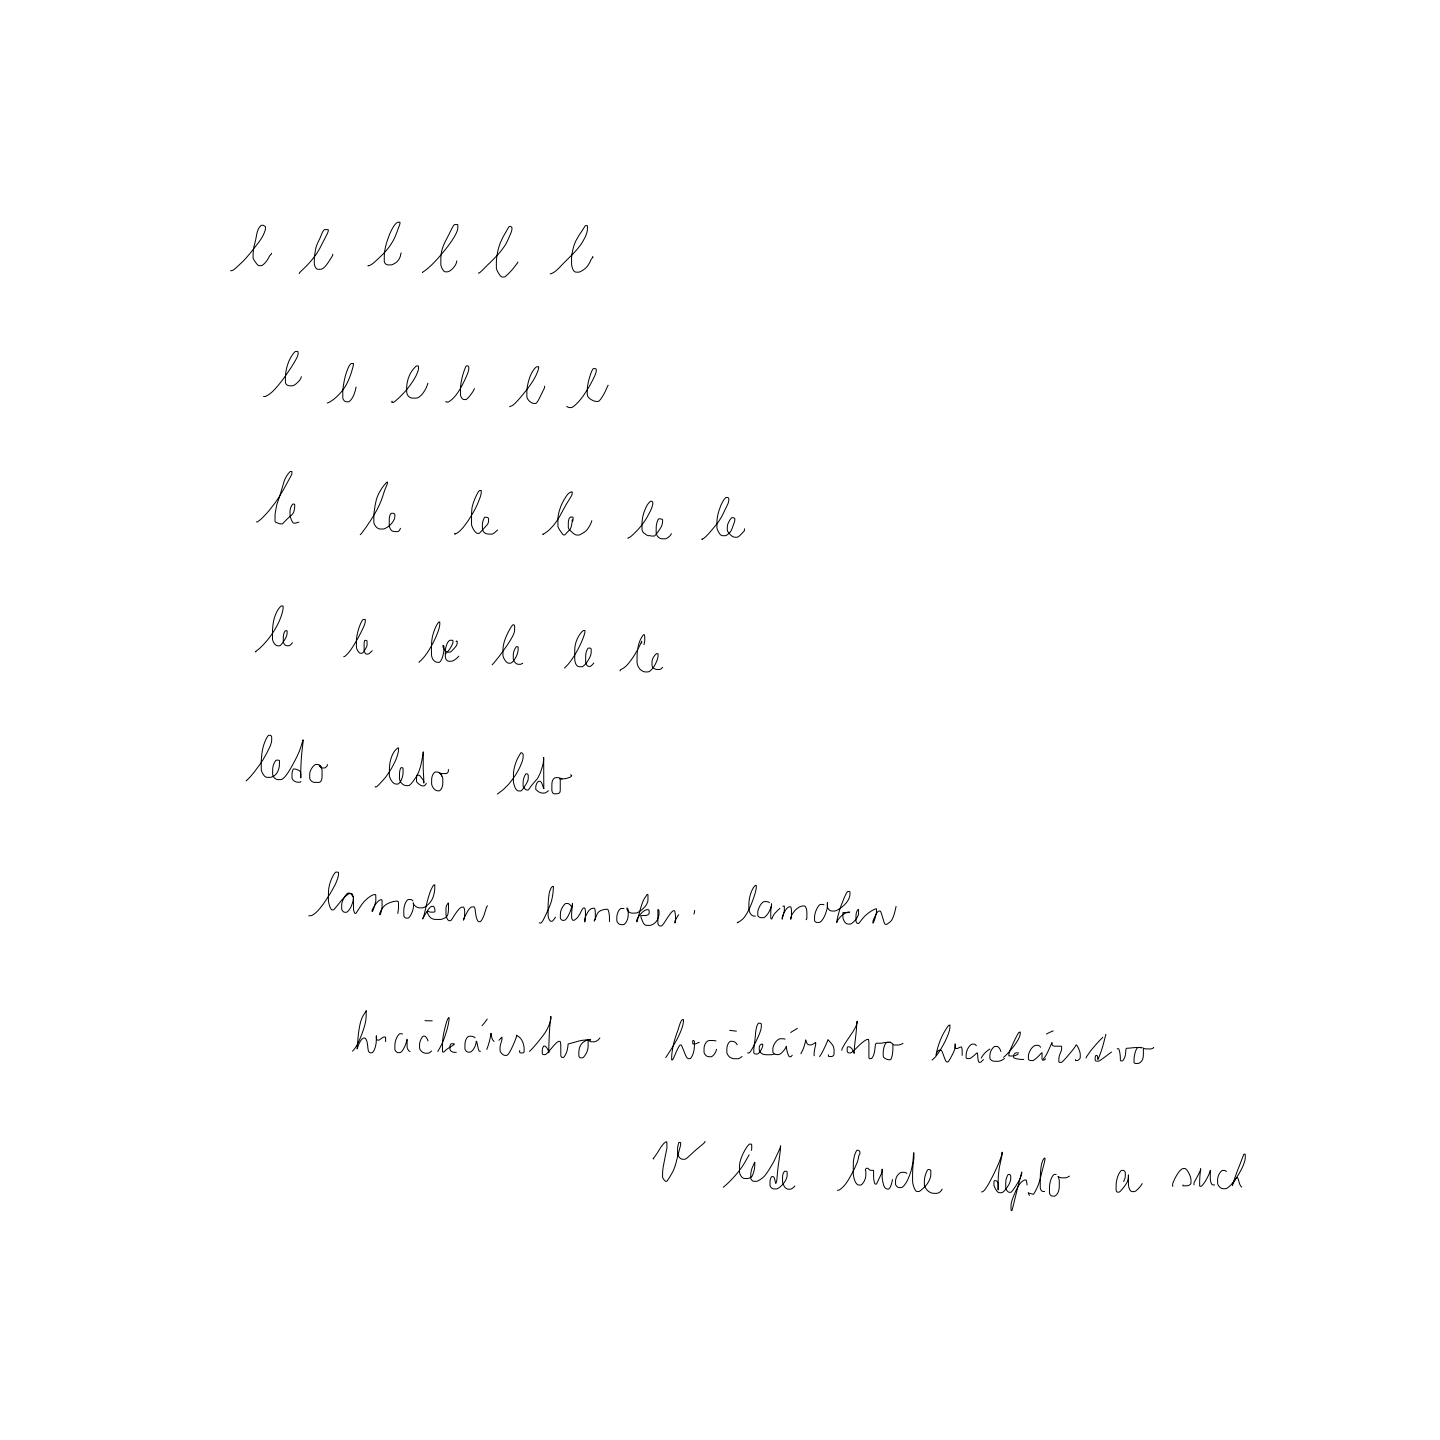 l l l l l l
l l l l l l
le le le le le le
le le le le le le
leto leto leto
lamoken lamoken lamoken
hračkárstvo hračkárstvo hrackárstvo
V lete bude teplo a such